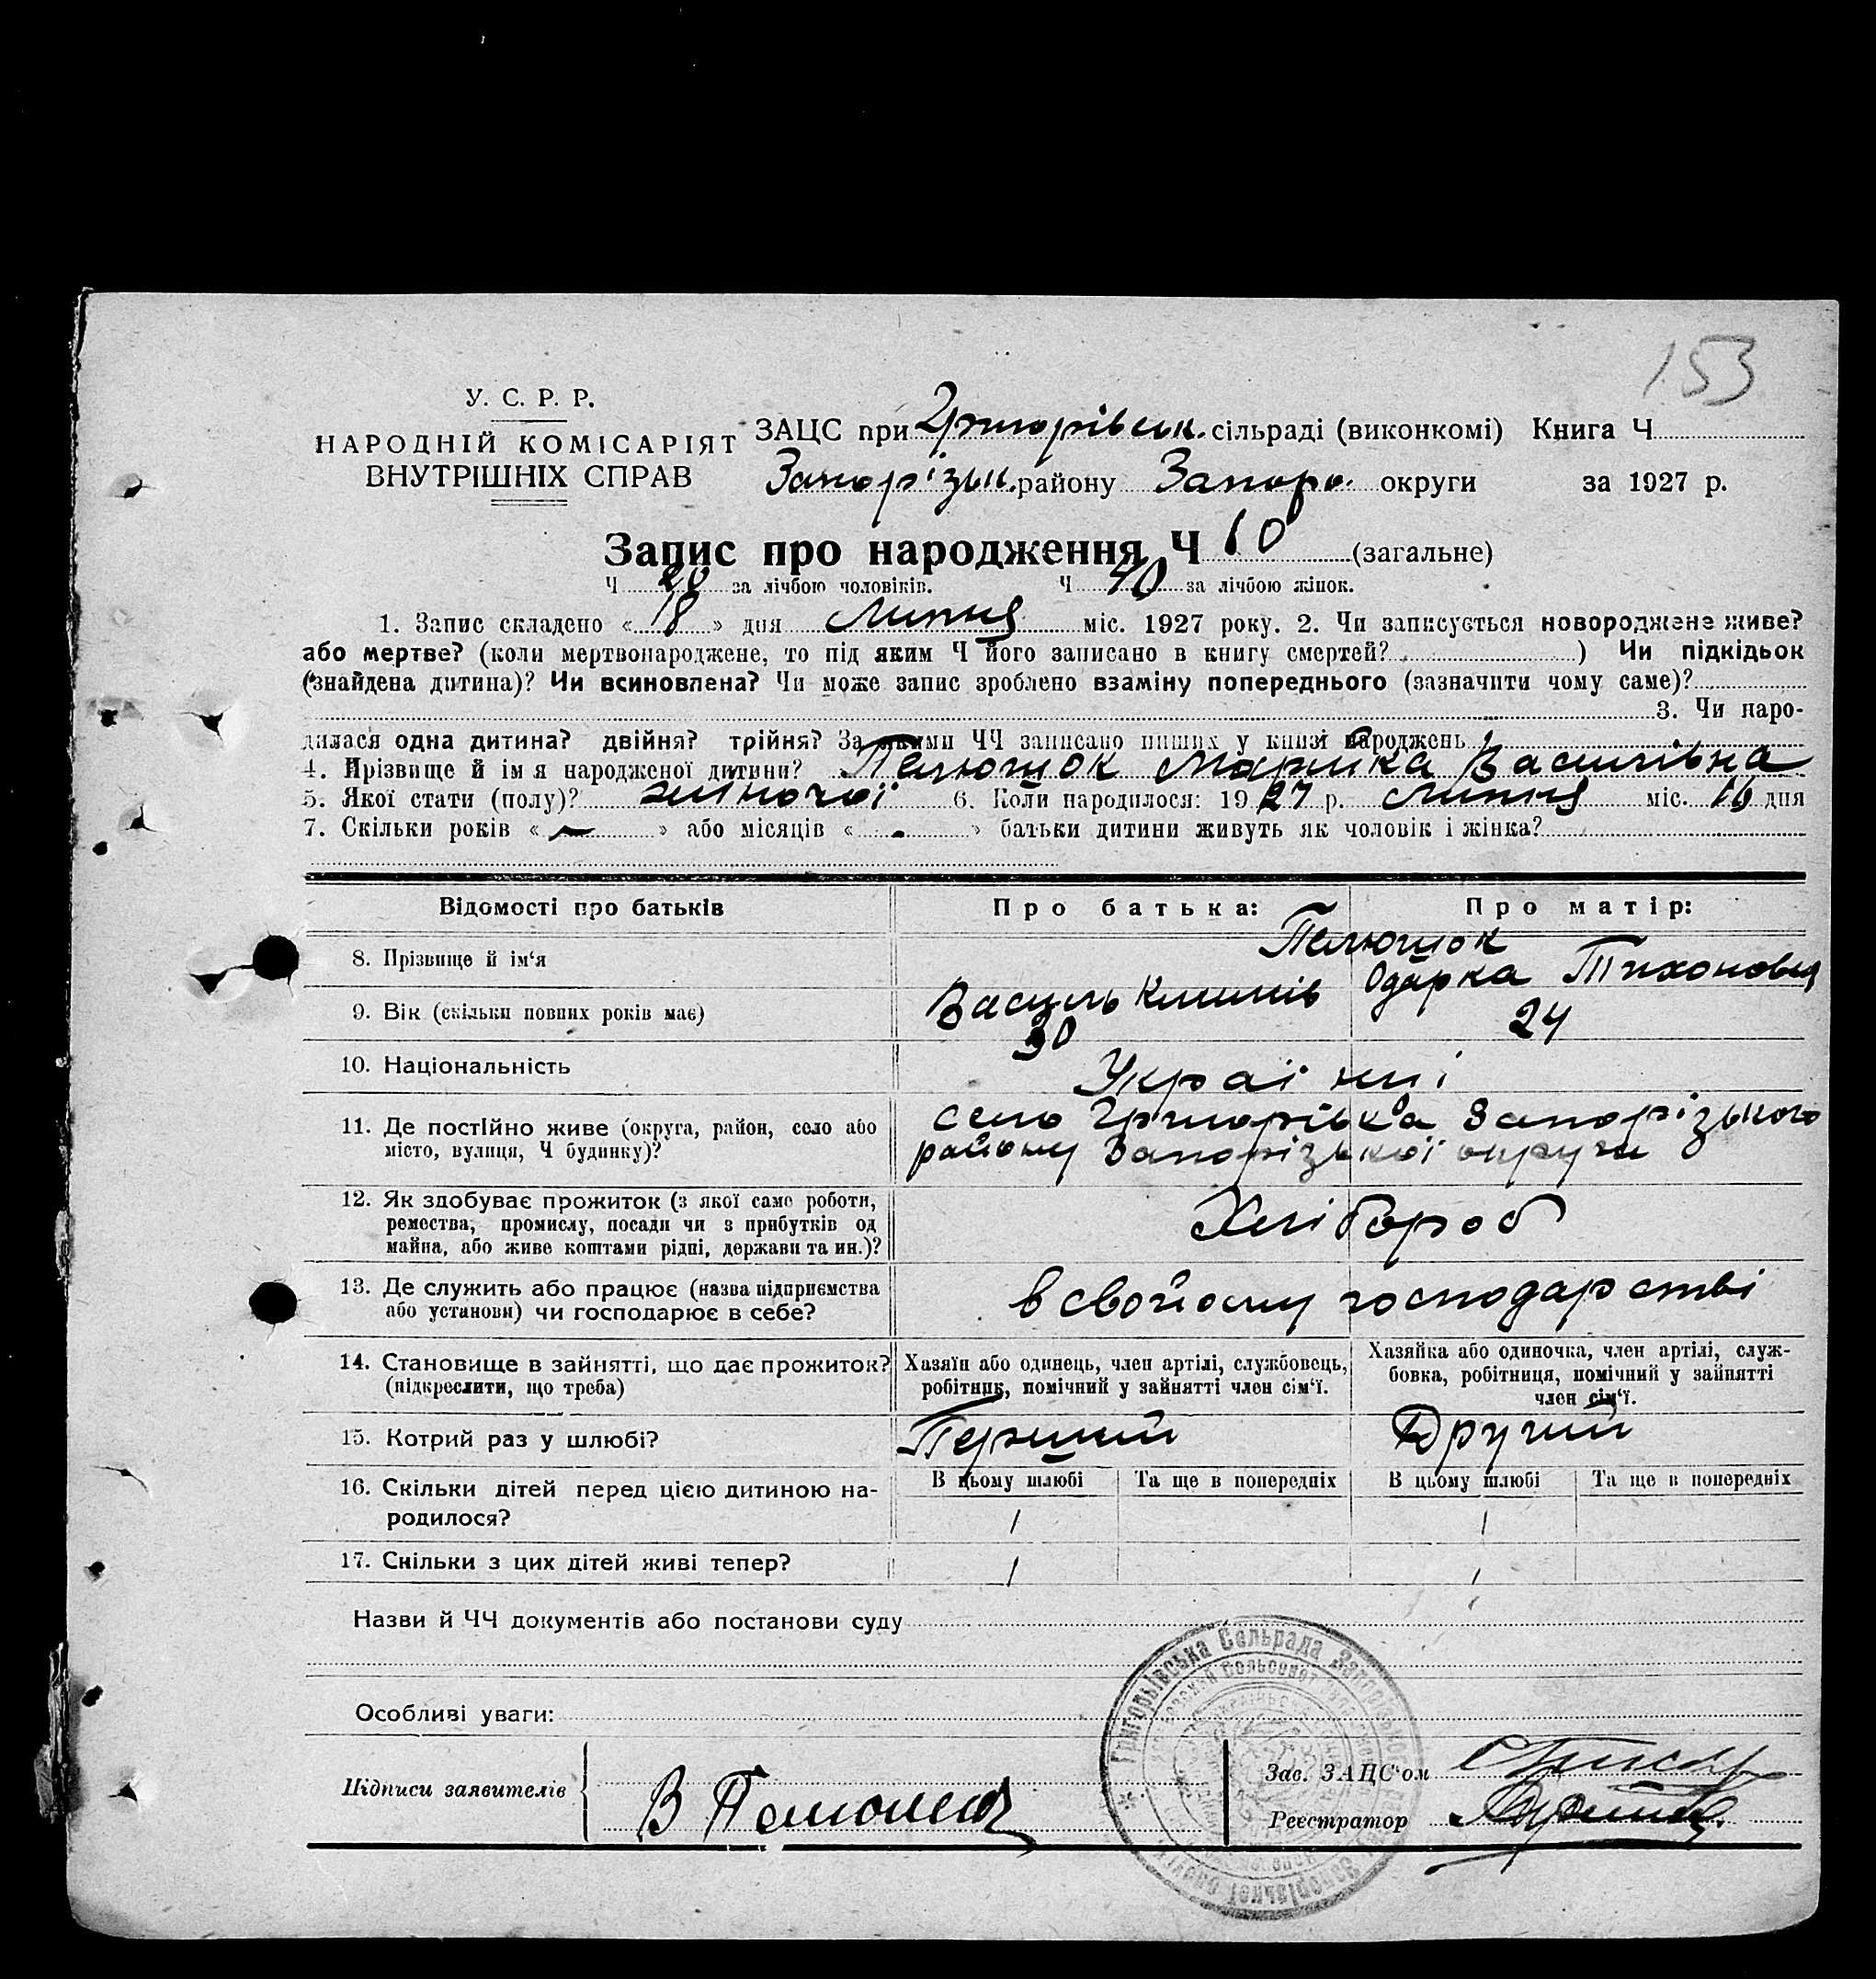 153
У. С. Р. Р.
НАРОДНІЙ КОМІСАРІЯТ
ВНУТРІШНІХ СПРАВ
ЗАЦС при Григорівськ. сільраді (виконкомі) Книга Ч
Запорізьк. району Запоро. округи за 1927 р.
Запис про народження Ч 60 (загальне)
Ч 20 за лічбою чоловіків. Ч 40 за лічбою жінок.
1. Запис складено «18» дня Липня міс. 1927 року. 2. Чи записується новороджене живе?
або мертве? (коли мертвонароджене, то під яким Ч його записано в книгу смертей? ) Чи підкідьок
(знайдена дитина)? Чи всиновлена? Чи може запис зроблено взаміну попереднього (зазначити чому саме)?
3. Чи наро-
дилася одна дитина? двійня? трійня? За якими ЧЧ записано инших у книзі народжень
4. Прізвище й ім я народженої дитини? Пелюшок Марійка Василівна
5. Якої стати (полу)? жіночої 6. Коли народилося: 1927 р. Липня міс. 16 дня
7. Скільки років « — » або місяців « » батьки дитини живуть як чоловік і жінка?
Відомості про батьків Про батька: Про матір:
Пелюшок
8. Прізвище й ім‘я Василь Климів Одарка Тихоновна
9. Вік (скільки повних років має) 30 24
10. Національність Украінці
11. Де постійно живе (округа, район, село або село Григорівка Запорізького
місто, вулиця, Ч будинку)? району Запорізької округи
12. Як здобуває прожиток (з якої саме роботи,
ремества, промислу, посади чи з прибутків од Хлібороб
майна, або живе коштами рідні, держави та ин.)?
13. Де служить або працює (назва підприємства в свойому господарстві
або установи) чи господарює в себе?
14. Становище в зайнятті, що дає прожиток? Хазяїн або одинець, член артілі, службовець, Хазяйка або одиночка, член артілі, служ-
(підкреслити, що треба) робітник, помічний у зайнятті член сім‘ї. бовка, робітниця, помічний у зайнятті
член сім‘ї.
15. Котрий раз у шлюбі? Перший Другий
16. Скільки дітей перед цією дитиною на- В цьому шлюбі Та ще в попередніх В цьому шлюбі Та ще в попередніх
родилося? 1 1
17. Скільки з цих дітей живі тепер? 1 1
Назви й ЧЧ документів або постанови суду
Григорівська Сельрада Запорізького
Запорізької округи
Особливі уваги:
Зав. ЗАЦС‘ом
Підписи заявителів В
Реєстратор